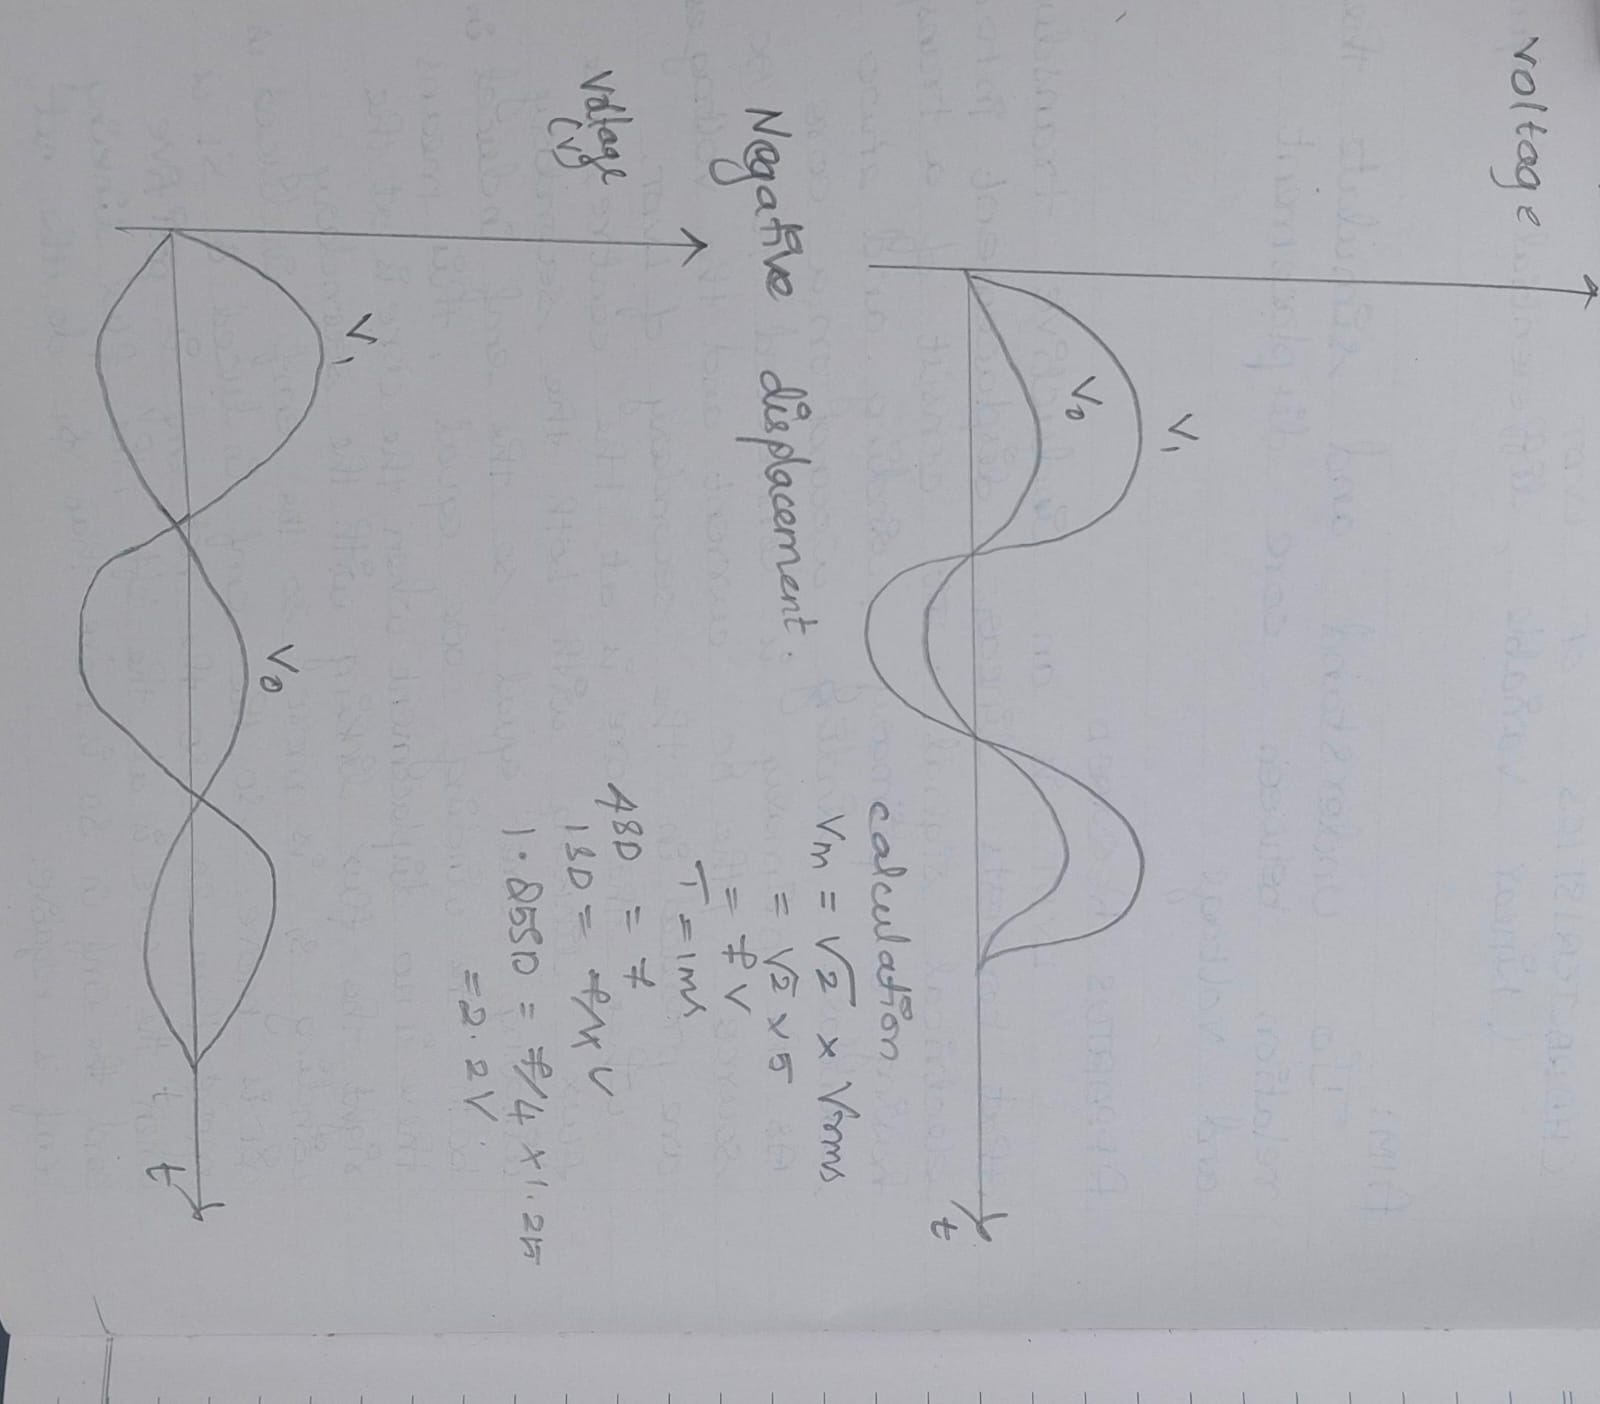 Voltage
V₁
V₀
t
calculation
Vm = √2 × Vrms
= √2 × 5
= 7 V
T = 1ms
480 = 7
180 = 7/4 V
1.2550 = 7/4 × 1.25
= 2.2 V.
Negative displacement.
Voltage
(V)
V₁
V₀
t